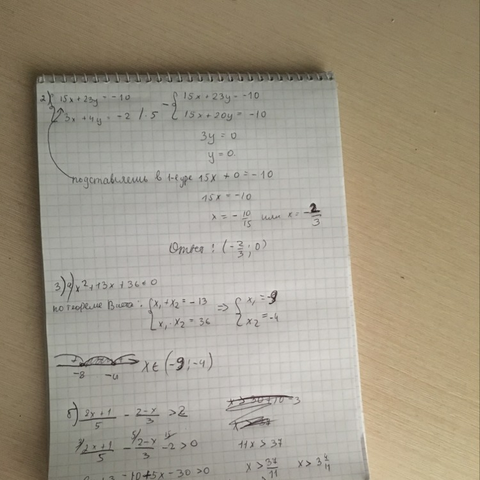 2) { 15x + 23y = -10
3x + 4y = -2 / · 5
- { 15x + 23y = -10
15x + 20y = -10
3y = 0
y = 0
подставляешь в 1-ур 15x + 0 = -10
15x = -10
x = -10/15 или x = -2/3
Ответ: (-2/3; 0)
3) а) x² + 13x + 36 < 0
по теореме Виета: { x₁ + x₂ = -13
x₁ · x₂ = 36
=> { x₁ = -9
x₂ = -4
-9 -4 x ∈ (-9; -4)
б) (2x+1)/5 - (2-x)/3 > 2
(2x+1)/5 - (2-x)/3 - 2 > 0
11x > 37
- 10 + 5x - 30 > 0
x > 37/11 x > 3 4/11